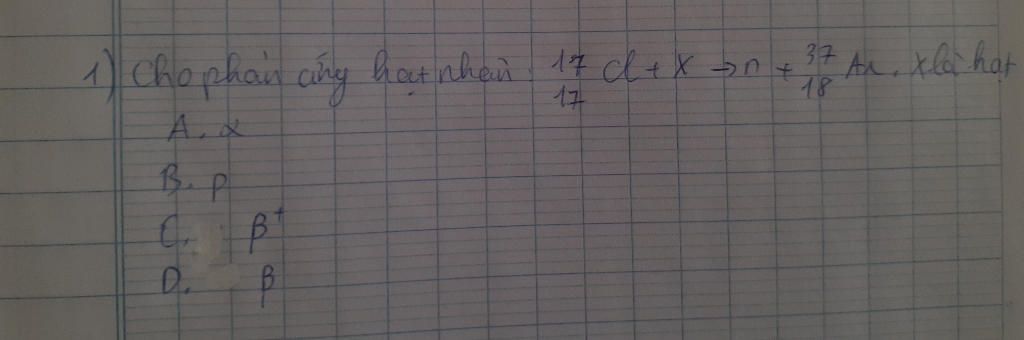 1) Cho phản ứng hạt nhân: ¹⁷₁₇ Cl + X → n + ³⁷₁₈ Ar. X là hạt
A. α
B. p
C. β⁺
D. β